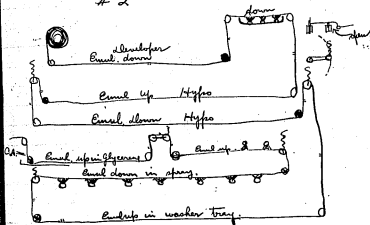 # 2
down
open
Developer
Emul. down
Emul up Hypo
Emul down Hypo
Emul. up in Glycerine
Emul up
Emul down in spray.
Emul up in washer tray.